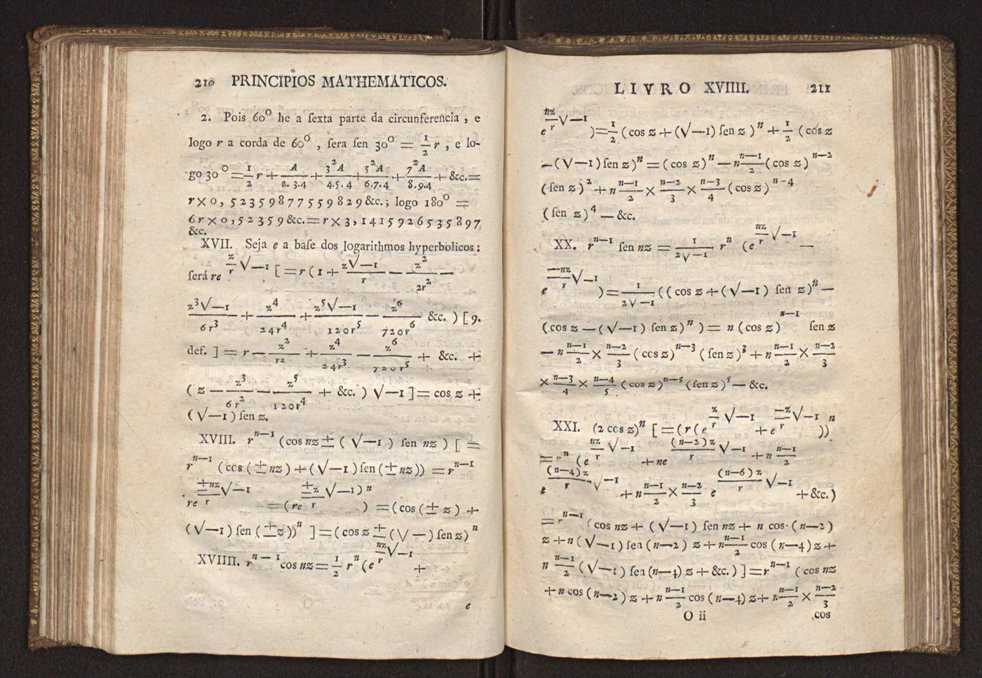 210 PRINCIPIOS MATHEMATICOS.
2. Pois 60° he a ſexta parte da circunferencia, e
logo r a corda de 60°, ſera ſen 30° = 1/2 r; e lo-
go 30° = 1/2 r + A/(2.3.4) + 3²A/(4.5.4) + 5²A/(6.7.4) + 7²A/(8.9.4) + &c. =
r × 0, 52359877559829 &c.; logo 180° =
6r × 0, 52359 &c. = r × 3, 1415926535897
&c.
XVII. Seja e a baſe dos logarithmos hyperbolicos;
ſerá re^(z/r √—1) [ = r ( 1 + z√—1/r — z²/2r² —
z³√—1/6r³ + z⁴/24r⁴ + z⁵√—1/120r⁵ — z⁶/720r⁶ &c. ) [ 9.
def. ] = r — z²/r2 + z⁴/24r³ — z⁶/720r⁵ + &c. +
( z — z³/6r² — z⁵/120r⁴ + &c. ) √—1 ] = cos z +
( √—1 ) ſen z.
XVIII. r^(n—1) ( cos nz ± ( √—1 ) ſen nz ) [ =
r^(n—1) ( cos ( ± nz ) + ( √—1 ) ſen ( ± nz )) = r^(n—1)
re^(±nz/r √—1) = ( re^(±z/r √—1) )^n = ( cos ( ± z ) +
( √—1 ) ſen ( ± z ))^n ] = ( cos z ± ( √— ) ſen z )^n
XVIIII. r^(n—1) cos nz = 1/2 r^n ( e^(nz/r √—1) +
e
LIVRO XVIIII. 211
e^(nz/r √—1) ) = 1/2 ( cos z + ( √—1 ) ſen z )^n + 1/2 ( cos z
— ( √—1 ) ſen z )^n = ( cos z )^n — n (n—1)/2 ( cos z )^(n—2)
( ſen z )² + n (n—1)/2 × (n—2)/3 × (n—3)/4 ( cos z )^(n—4)
( ſen z )⁴ — &c.
XX. r^(n—1) ſen nz = 1/(2√—1) r^n ( e^(nz/r √—1) —
e^(—nz/r √—1) ) = 1/(2√—1) (( cos z + ( √—1 ) ſen z )^n —
( cos z — ( √—1 ) ſen z )^n ) = n ( cos z )^(n—1) ſen z
— n (n—1)/2 × (n—2)/3 ( cos z )^(n—3) ( ſen z )³ + n (n—1)/2 × (n—2)/3
× (n—3)/4 × (n—4)/5 ( cos z )^(n—5) ( ſen z )⁵ — &c.
XXI. ( 2 cos z )^n [ = ( r ( e^(z/r √—1) + e^(—z/r √—1) ))^n
= r^n ( e^(nz/r √—1) + ne^((n—2)z/r √—1) + n (n—1)/2
e^((n—4)z/r √—1) + n (n—1)/2 × (n—2)/3 e^((n—6)z/r √—1) + &c. )
= r^(n—1) ( cos nz + ( √—1 ) ſen nz + n cos ( n—2 )
z + n ( √—1 ) ſen ( n—2 ) z + n (n—1)/2 cos ( n—4 ) z +
n (n—1)/2 ( √—1 ) ſen ( n—4 ) z + &c. ) ] = r^(n—1) ( cos nz
+ n cos ( n—2 ) z + n (n—1)/2 cos ( n—4 ) z + n (n—1)/2 × (n—2)/3
O ii cos